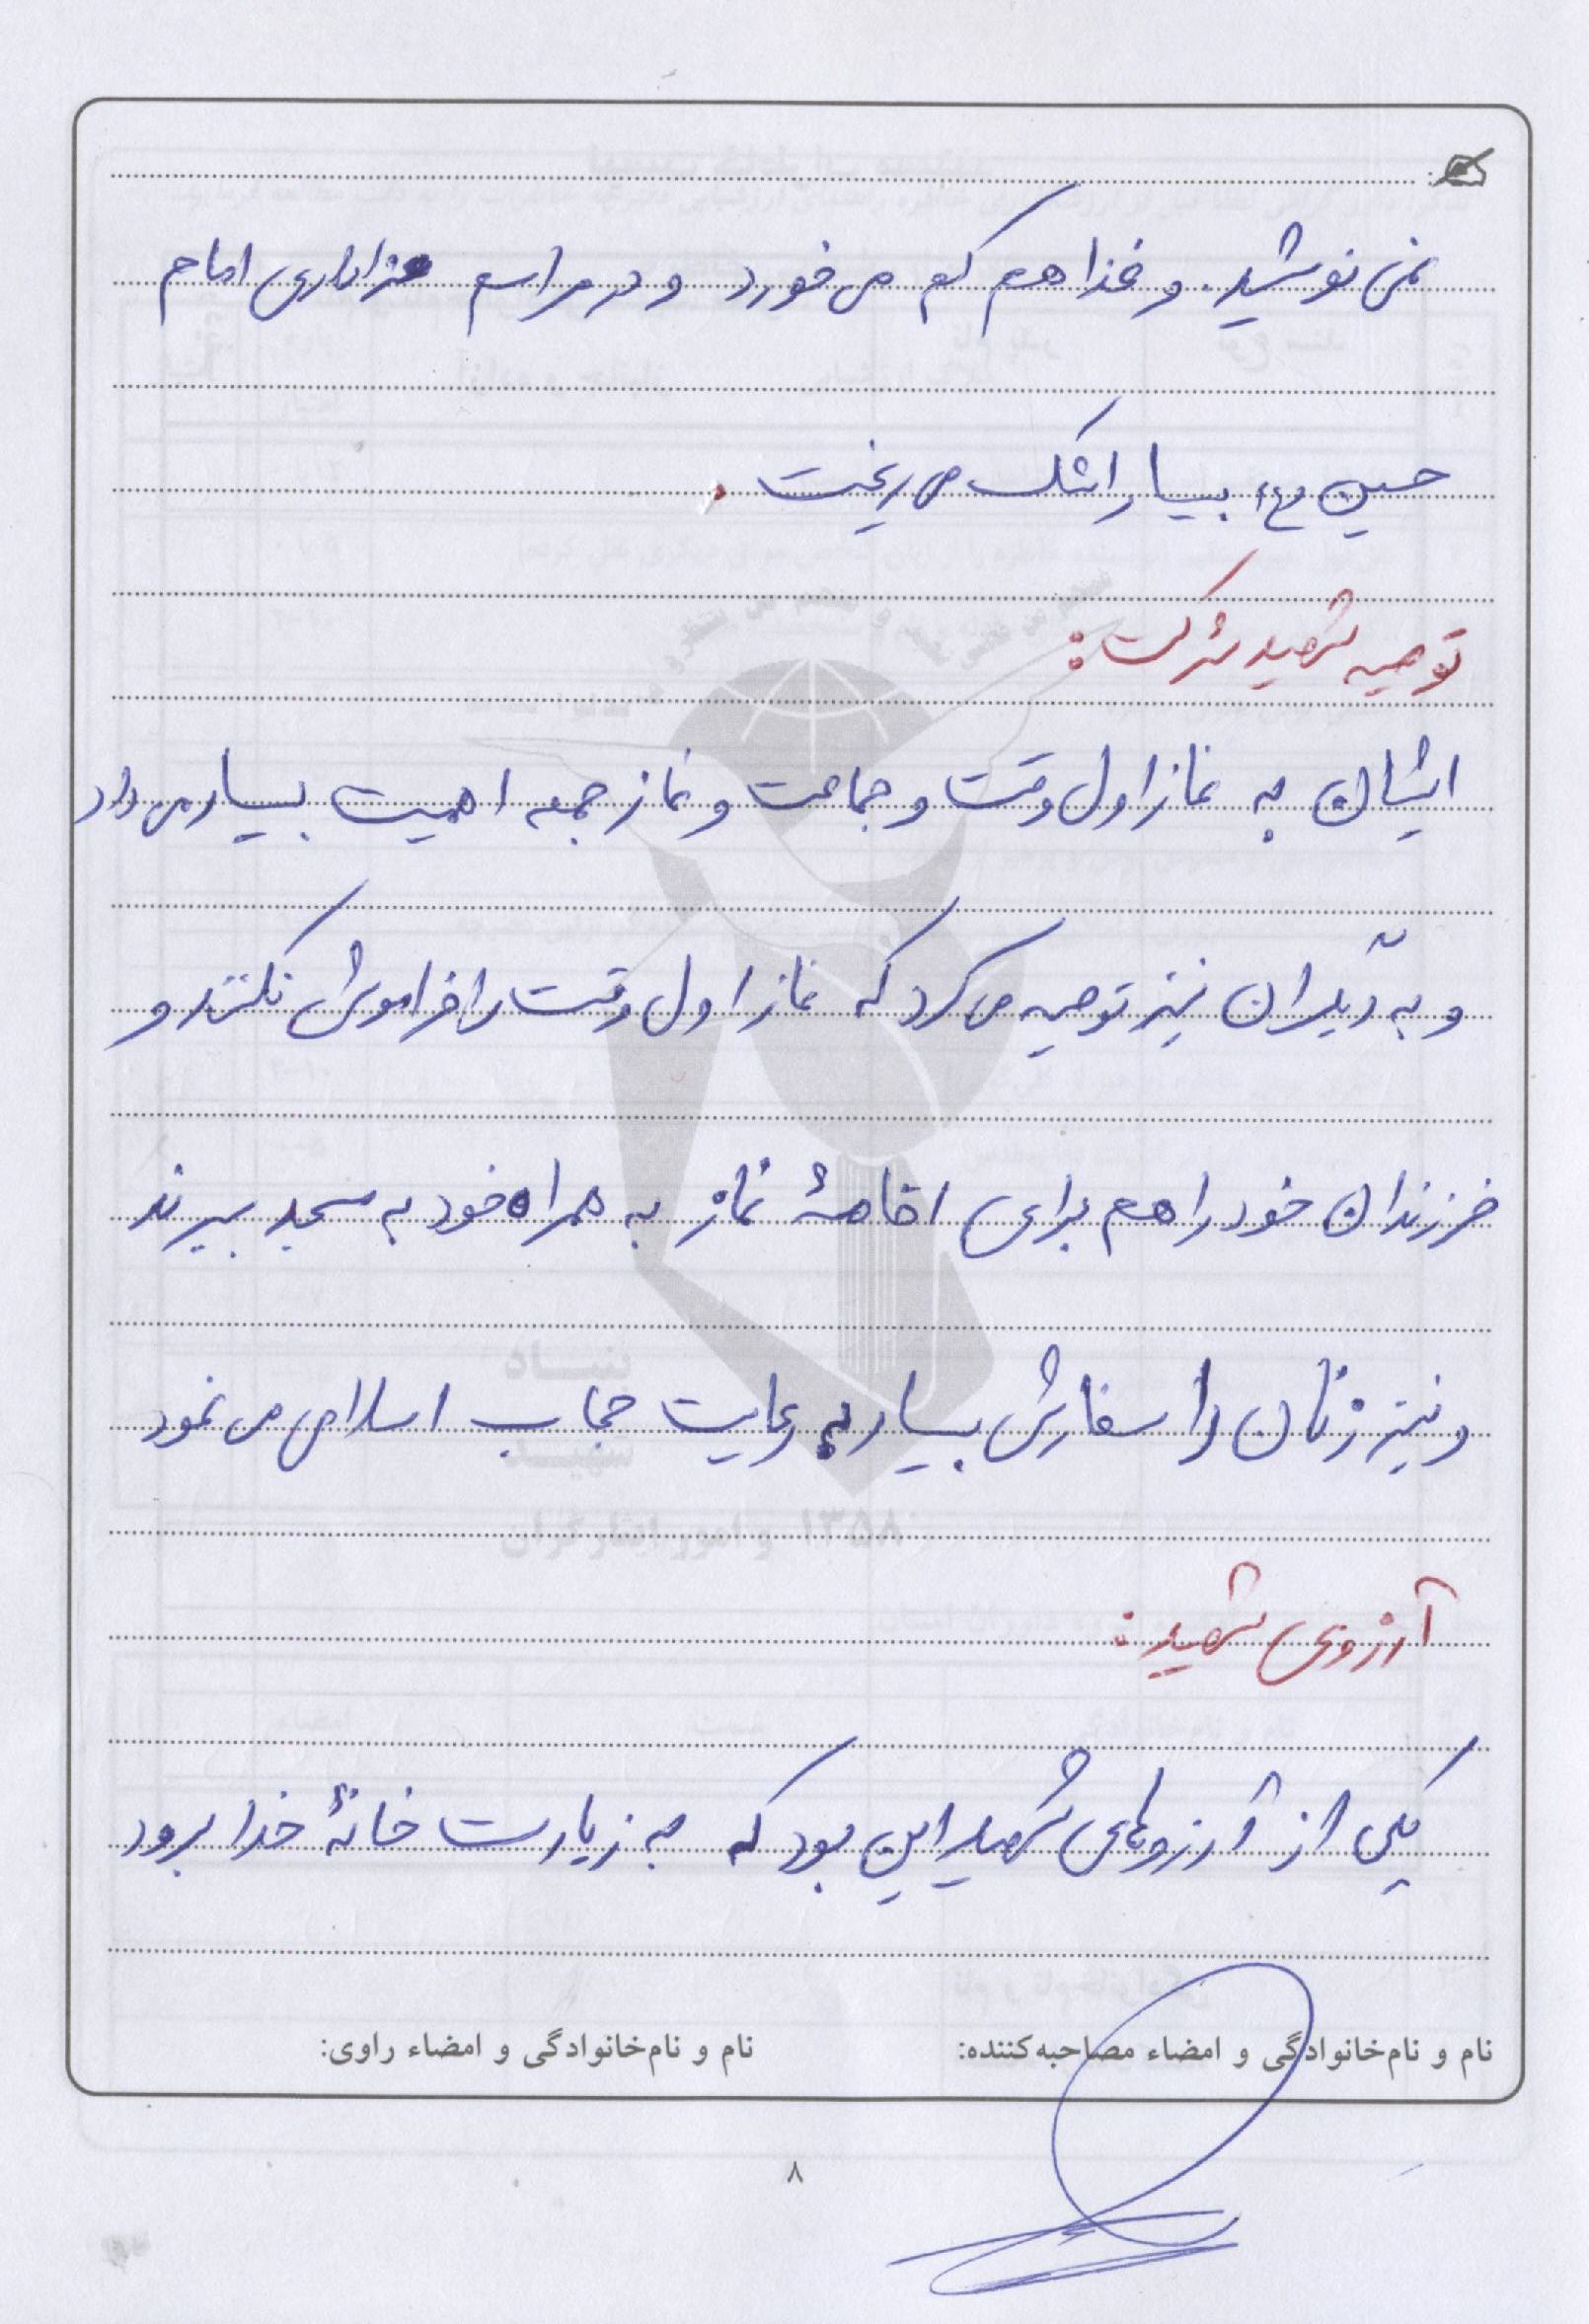 نمی نوشید. و غذا هم کم می خورد و در مراسم عزاداری امام
حسین (ع) بسیار اشک می ریخت .
توصیه شهید شرکت :
ایشان به نماز اول وقت و جماعت و نماز جمعه اهمیت بسیار می داد
و به دیگران نیز توصیه می کرد که نماز اول وقت را فراموش نکنند و
فرزندان خود را هم برای اقامهٔ نماز به همراه خود به مسجد ببرند
و نیز زنان را سفارش بسیار به رعایت حجاب اسلامی می نمود
آرزوی شهید :
یکی از آرزوهای شهید این بود که به زیارت خانهٔ خدا برود
نام و نام‌خانوادگی و امضاء مصاحبه‌کننده:
نام و نام‌خانوادگی و امضاء راوی:
۸
بنیاد
شهید
و امور ایثارگران ۱۳۵۸